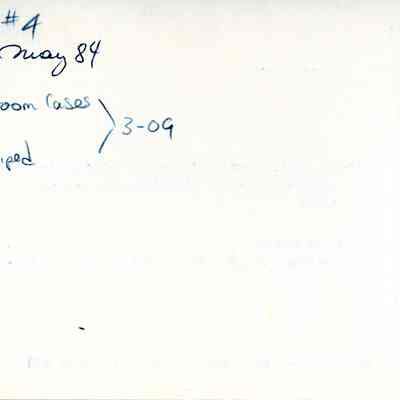 #4
May 84
oom Cases
3-09
iped